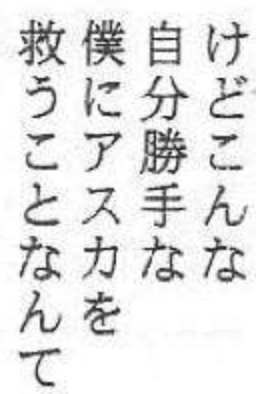 けどこんな
自分勝手な
僕にアスカを
救うことなんて